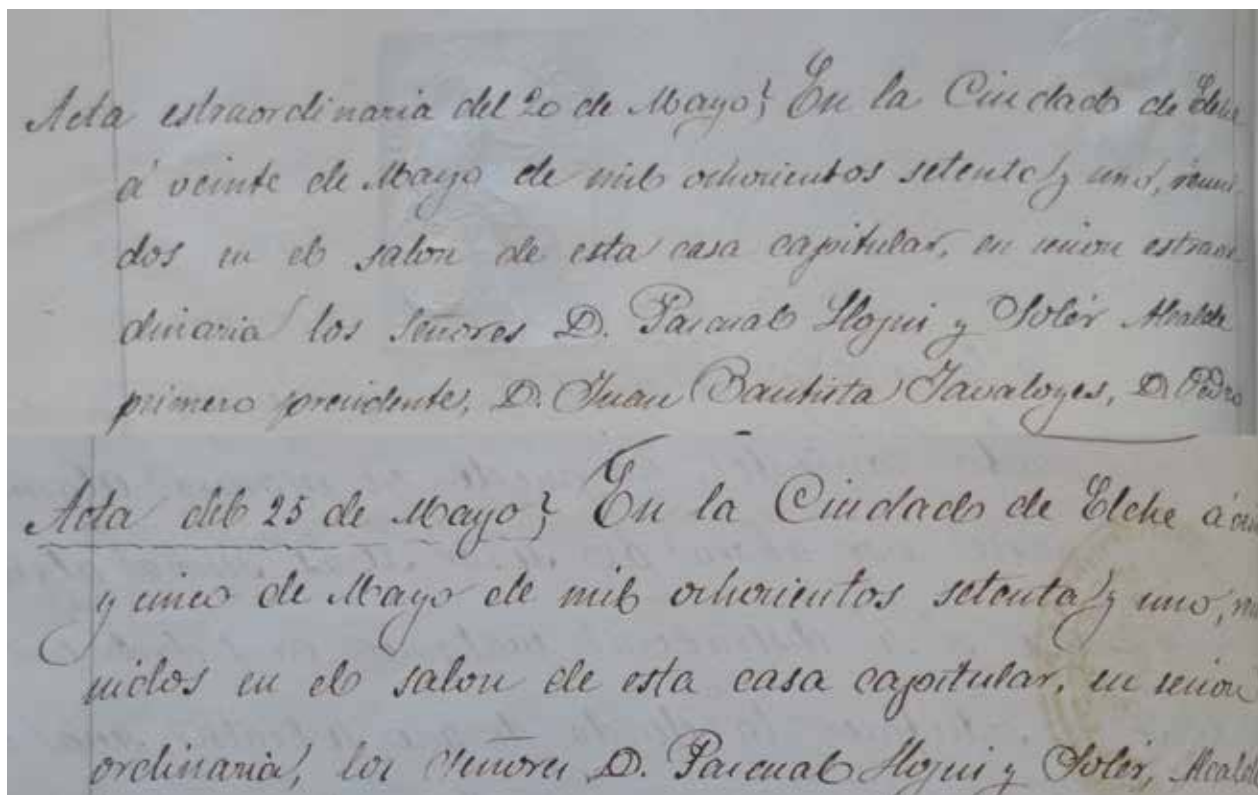 Acta estraordinaria del 20 de Mayo} En la Ciudad de Elche
á veinte de Mayo de mil ochocientos setenta y uno, reuni-
dos en el salon de esta casa capitular, en sesion estraor
dinaria los Señores D. Pascual Llopis y Soler Alcalde
primero presidente, D. Juan Bautista Javaloyes, D. Pedro
Acta del 25 de Mayo} En la Ciudad de Elche á
y cinco de Mayo de mil ochocientos setenta y uno,
nidos en el salon de esta casa capitular, en sesion
ordinaria, los Señores D. Pascual Llopis y Soler, Alcalde